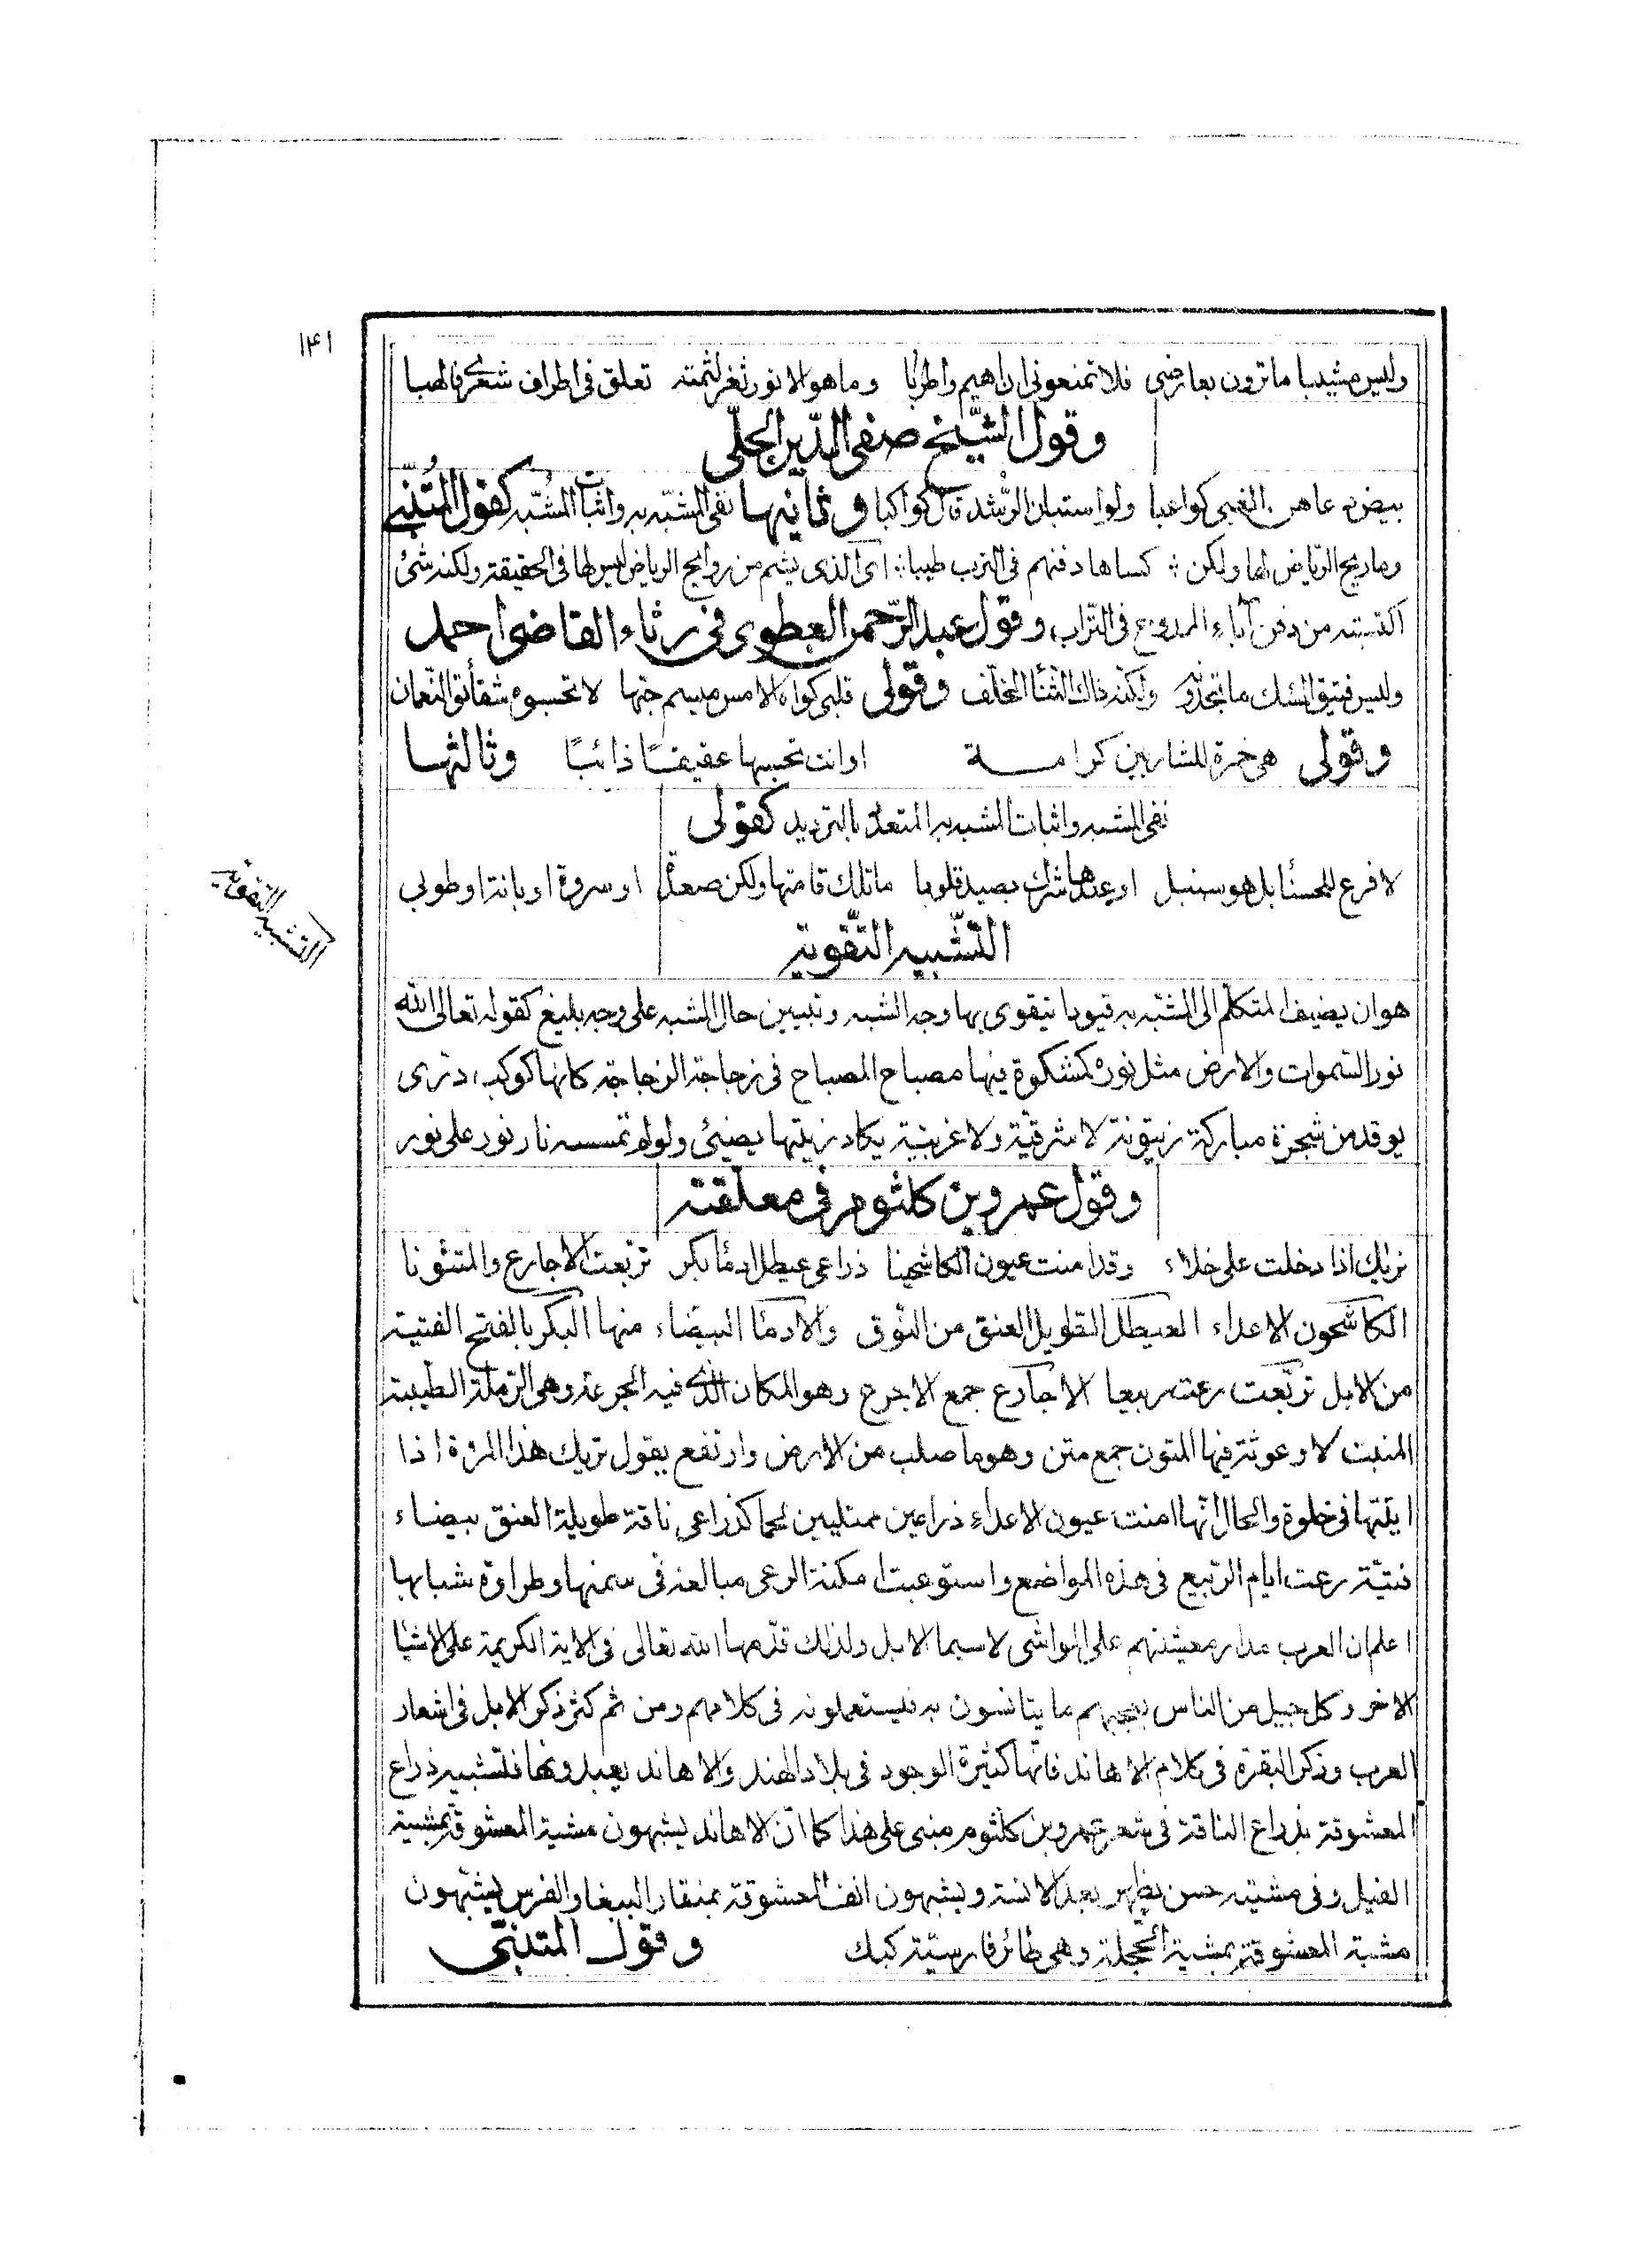 ١٤١
وليس مشيبا ما ترون بعارضى فلا تمنعونى ان اهيم واطربا وما هو الا نور ثغر لثمته تعلق فى اطراف شعرى فالهبا
وقول الشيخ صفى الدين الحلّى
بيض دعاهن الغبى كواعبا ولو استبان الرشد قال كواكبا وثانيها نفى المشبّه به واثبات المشبّه كقول المتنبّى
وما ريح الرياض لها ولكن كساها دفنهم فى الترب طيبا اى الذى يشم من روايح الرياض ليس لها فى الحقيقة ولكنه شئ
اكتسبته من دفن آباء الممدوح فى التراب وقول عبد الرّحمن العطوى فى رثاء القاضى احمد
وليس فتيق المسك ما تجدونه ولكنه ذاك الثنا المخلّف وقولى قلبى كواه الامس ميسم حبها لا تحسبوه شقائق النّعمان
وقولى هى خمرة للشاربين كرامة او انت تحسبها عقيقًا ذائبًا وثالثها
نفى المشبه واثبات المشبه به المتعدّد بالترديد كقولى
لا فرع للحسنا بل هو سنبل او عندها شرك يصيد قلوبا ما تلك قامتها ولكن صعدة او سروة او بانة او طوبى
التّشبيه التّقوية
التشبيه التقوية
هو ان يضيف المتكلّم الى المشبّه به قيودا يتقوى بها وجه الشبه وتبيين حال المشبه على وجه بليغ كقوله تعالى الله
نور السّموات والارض مثل نوره كمشكوة فيها مصباح المصباح فى زجاجة الزجاجة كانها كوكب درى
يوقد من شجرة مباركة زيتونة لا شرقيّة ولا غربيّة يكاد زيتها يضيئ ولو لم تمسسه نار نور على نور
وقول عمرو بن كلثوم فى معلّقته
تريك اذا دخلت على خلاء وقد امنت عيون الكاشحينا ذراعى عيطل ادمأ بكر تربّعت الاجارع والمتونا
الكاشحون الاعداء العيطل الطويل العنق من النّوق والادمأ البيضاء منها البكر بالفتح الفتية
من الابل تربّعت رعت ربيعا الاجارع جمع الاجرع وهو المكان الذى فيه الجرعة وهى الرّملة الطّيبة
المنبت لا وعوثة فيها المتون جمع متن وهو ما صلب من الارض وارتفع يقول تريك هذا المرءة اذا
ايتّها فى خلوة والحال انّها امنت عيون الاعداء ذراعين ممتليين لحما كذراعى ناقة طويلة العنق بيضاء
فتيّة رعت ايام الرّبيع فى هذه المواضع واستوعبت امكنة الرعى مبالغة فى سمنها وطراوة شبابها
اعلم ان العرب مدار معيشتهم على المواشى لا سيما الابل ولذلك قدّمها الله تعالى فى الاية الكريمة على الاشيا
الاخر وكل جيل من الناس يعجبهم ما يتانسون به فيستعملونه فى كلامهم ومن ثم كثر ذكر الابل فى اشعار
العرب وذكر البقرة فى كلام الاهاند فانّها كثيرة الوجود فى بلاد الهند والاهاند يعبدونها فتشبيه ذراع
المعشوقة بذراع الناقة فى شعر عمرو بن كلثوم مبنى على هذا كما انّ الاهاند يشبهون مشية المعشوقة بمشية
الفيل وفى مشيته حسن يظهر بعد الانسة ويشبهون انف المعشوقة بمنقار الببغا والفرس يشبّهون
مشية المعشوقة بمشية الحجلة وهى طائر فارسيّته كبك وقول المتنبّى